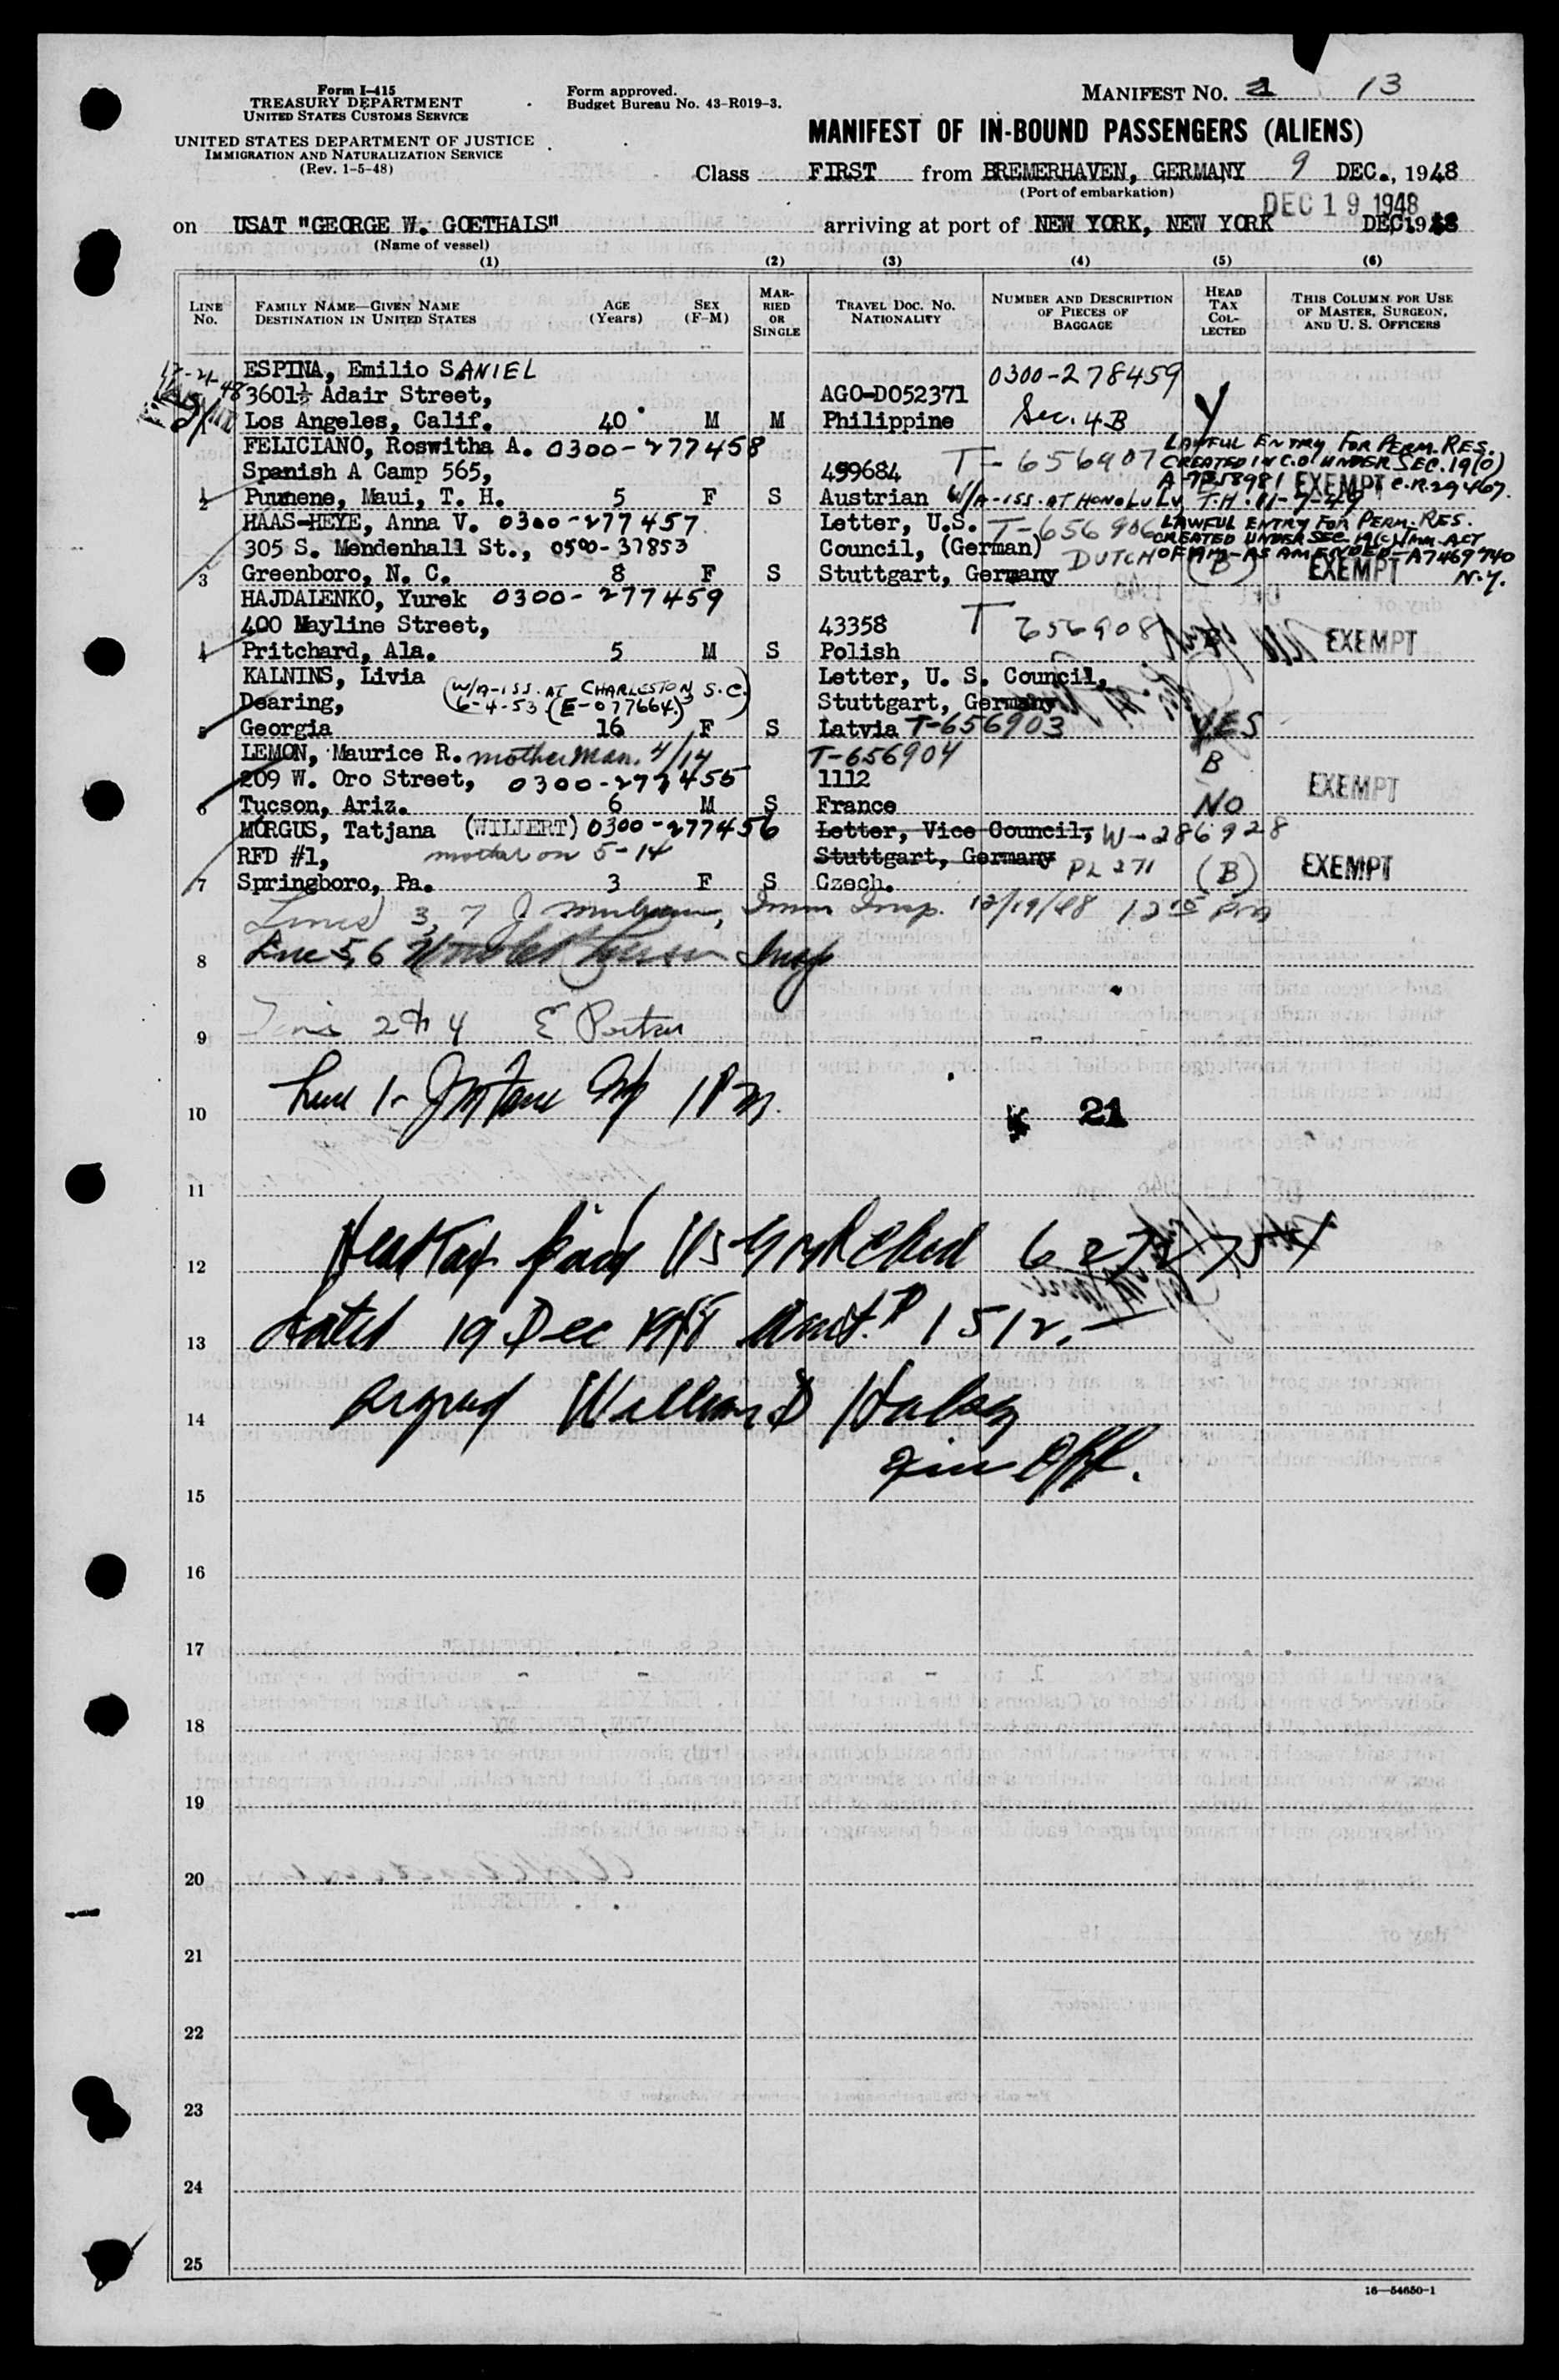 Form I-415
TREASURY DEPARTMENT
UNITED STATES CUSTOMS SERVICE
UNITED STATES DEPARTMENT OF JUSTICE
IMMIGRATION AND NATURALIZATION SERVICE
(Rev. 1-5-48)
Form approved.
Budget Bureau No. 43-R019-3.
MANIFEST NO. 13
MANIFEST OF IN-BOUND PASSENGERS (ALIENS)
Class FIRST from BREMERHAVEN, GERMANY 9 DEC., 1948
(Port of embarkation)
DEC 19 1948
on USAT "GEORGE W. GOETHALS" arriving at port of NEW YORK, NEW YORK DEC. 1948
(Name of vessel)
(1) (2) (3) (4) (5) (6)
LINE No. FAMILY NAME—GIVEN NAME DESTINATION IN UNITED STATES AGE (Years) SEX (F-M) MARRIED OR SINGLE TRAVEL DOC. NO. NATIONALITY NUMBER AND DESCRIPTION OF PIECES OF BAGGAGE HEAD TAX COLLECTED THIS COLUMN FOR USE OF MASTER, SURGEON, AND U. S. OFFICERS
12-21-48
ESPINA, Emilio SANIEL 0300-278459
3601½ Adair Street, AGO-D052371
1 Los Angeles, Calif. 40 M M Philippine Sec. 4-B Y
FELICIANO, Roswitha A. 0300-277458 LAWFUL ENTRY FOR PERM. RES.
Spanish A Camp 565, 499684 T-656907 CREATED IN C.O. UNDER SEC. 19(C)
A-7258981 EXEMPT C.R. 29467.
2 Puunene, Maui, T. H. 5 F S Austrian W/A-ISS. AT HONOLULU, T.H. 11-7-49
HAAS-HEYE, Anna V. 0300-277457 Letter, U.S. T-656906 LAWFUL ENTRY FOR PERM. RES.
305 S. Mendenhall St., 0500-37853 Council, (German) DUTCH CREATED UNDER SEC. 19(C) IMM. ACT
OF 1917-AS AMENDED-A7469740
3 Greenboro, N. C. 8 F S Stuttgart, Germany (B) EXEMPT N.Y.
HAJDALENKO, Yurek 0300-277459
400 Mayline Street, 43358 T 656908
4 Pritchard, Ala. 5 M S Polish EXEMPT
KALNINS, Livia (W/A-ISS. AT CHARLESTON S.C. Letter, U. S. Council,
Dearing, 6-4-53 (E-077664.) Stuttgart, Germany
5 Georgia 16 F S Latvia T-656903 YES
LEMON, Maurice R. mother Man. 4/14 T-656904
209 W. Oro Street, 0300-277455 1112 B EXEMPT
6 Tucson, Ariz. 6 M S France NO
MORGUS, Tatjana (WILLERT) 0300-277456 Letter, Vice Council, W-286928
RFD #1, mother on 5-14 Stuttgart, Germany PL 271
7 Springboro, Pa. 3 F S Czech. (B) EXEMPT
Lines 3, 7 J Imm Insp. 12/19/48 12 15 pm
8 Line 5, 6 Insp
9 2 & 4 E
10 Line 1- 1 PM. 21
11
12 Head Tax paid US Check
13 dated 19 Dec 1948 Amt. 1512.—
14 signed William D Halsey
Fin Off.
15
16
17
18
19
20
21
22
23
24
25
16—54650-1